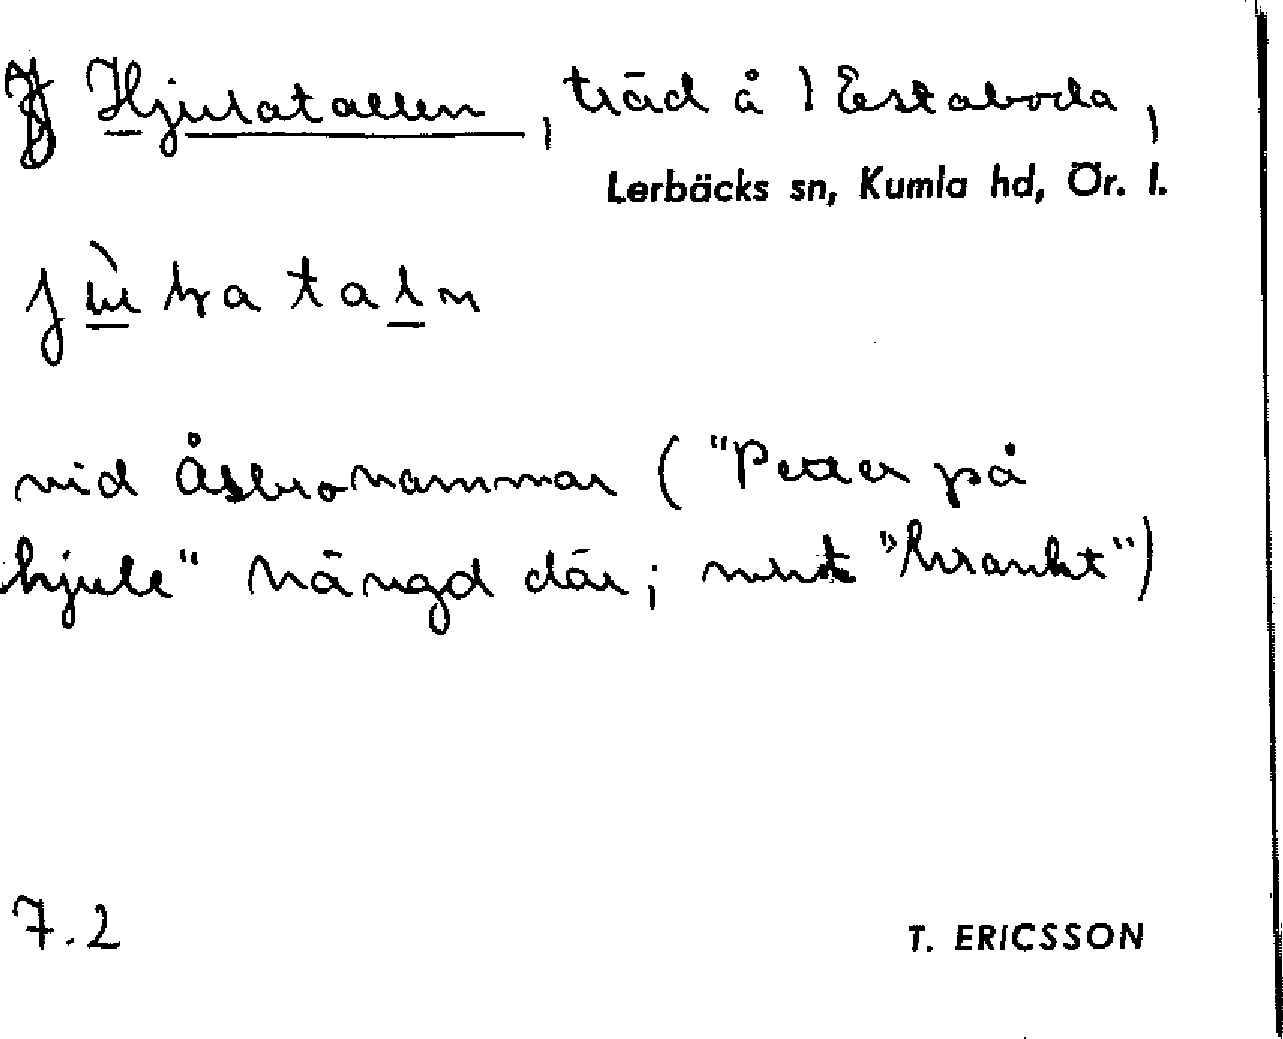 Hjulatallen, träd å 1 Estaboda,
Lerbäcks sn, Kumla hd, Ör. l.
vid Åsbrohammar ("Petter på
hjule" hängd där; "krankt")
7.2
T. ERICSSON